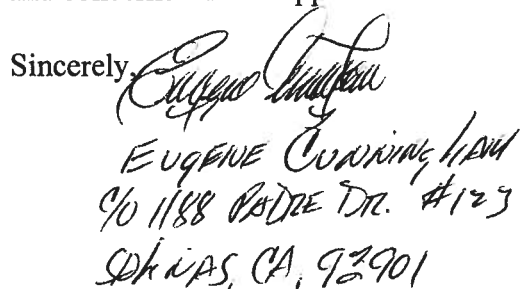 Sincerely,
Eugene Cunningham
EUGENE CUNNINGHAM
c/o 1188 PADRE DR. #123
SALINAS, CA, 93901